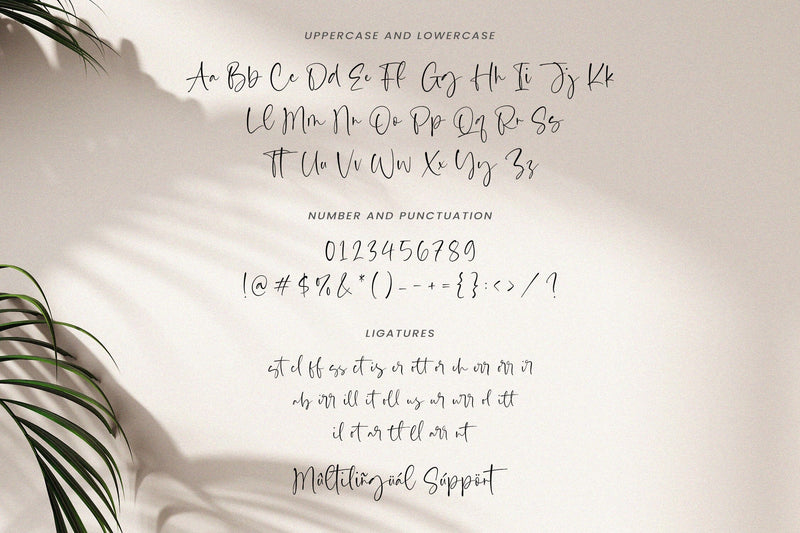 UPPERCASE AND LOWERCASE
Aa Bb Cc Dd Ee Ff Gg Hh Ii Jj Kk
Ll Mm Nn Oo Pp Qq Rr Ss
Tt Uu Vv Ww Xx Yy Zz
NUMBER AND PUNCTUATION
0123456789
!@#$%&*()_-+={}:<>/?
LIGATURES
st el ff ss ct is er ott or ch err orr ir
ab irr ill it oll us ur urr ol itt
il ot ar tt ell arr nt
Mûltiliñgüál Súppört